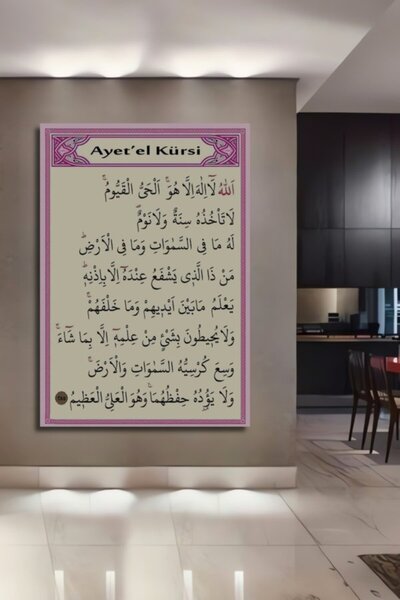 Ayet'el Kürsi
اَللّٰهُ لَٓا اِلٰهَ اِلَّا هُوَۚ اَلْحَيُّ الْقَيُّومُۚ
لَا تَأْخُذُهُ سِنَةٌ وَلَا نَوْمٌۜ
لَهُ مَا فِي السَّمٰوَاتِ وَمَا فِي الْاَرْضِۜ
مَنْ ذَا الَّذ۪ي يَشْفَعُ عِنْدَهُٓ اِلَّا بِاِذْنِه۪ۜ
يَعْلَمُ مَا بَيْنَ اَيْد۪يهِمْ وَمَا خَلْفَهُمْۚ
وَلَا يُح۪يطُونَ بِشَيْءٍ مِنْ عِلْمِه۪ٓ اِلَّا بِمَا شَٓاءَۚ
وَسِعَ كُرْسِيُّهُ السَّمٰوَاتِ وَالْاَرْضَۚ
وَلَا يَؤُ۫دُهُ حِفْظُهُمَاۚ وَهُوَ الْعَلِيُّ الْعَظ۪يمُ